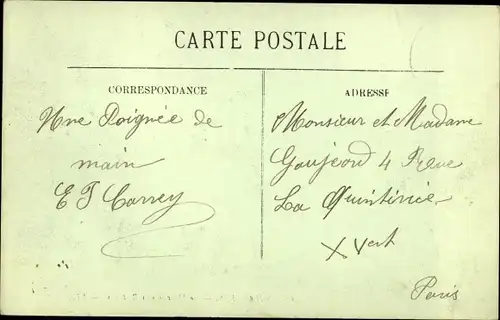 CARTE POSTALE
CORRESPONDANCE
ADRESSE
Une Poignée de
main
E T Carrey
Monsieur et Madame
Goujeord 4 Reue
La Quintinie
X Vert
Paris